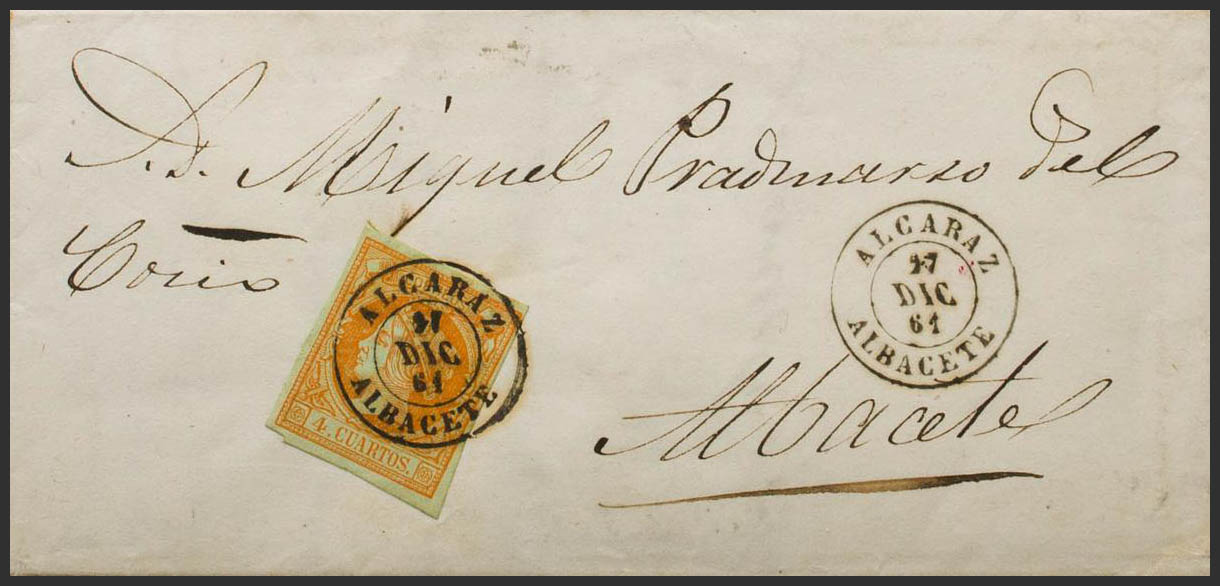 A.D. Miguel Pradmarso del
Corio
ALCARAZ
27
DIC
61
ALBACETE
ALCARAZ
27
DIC
61
ALBACETE
4. CUARTOS.
Albacete